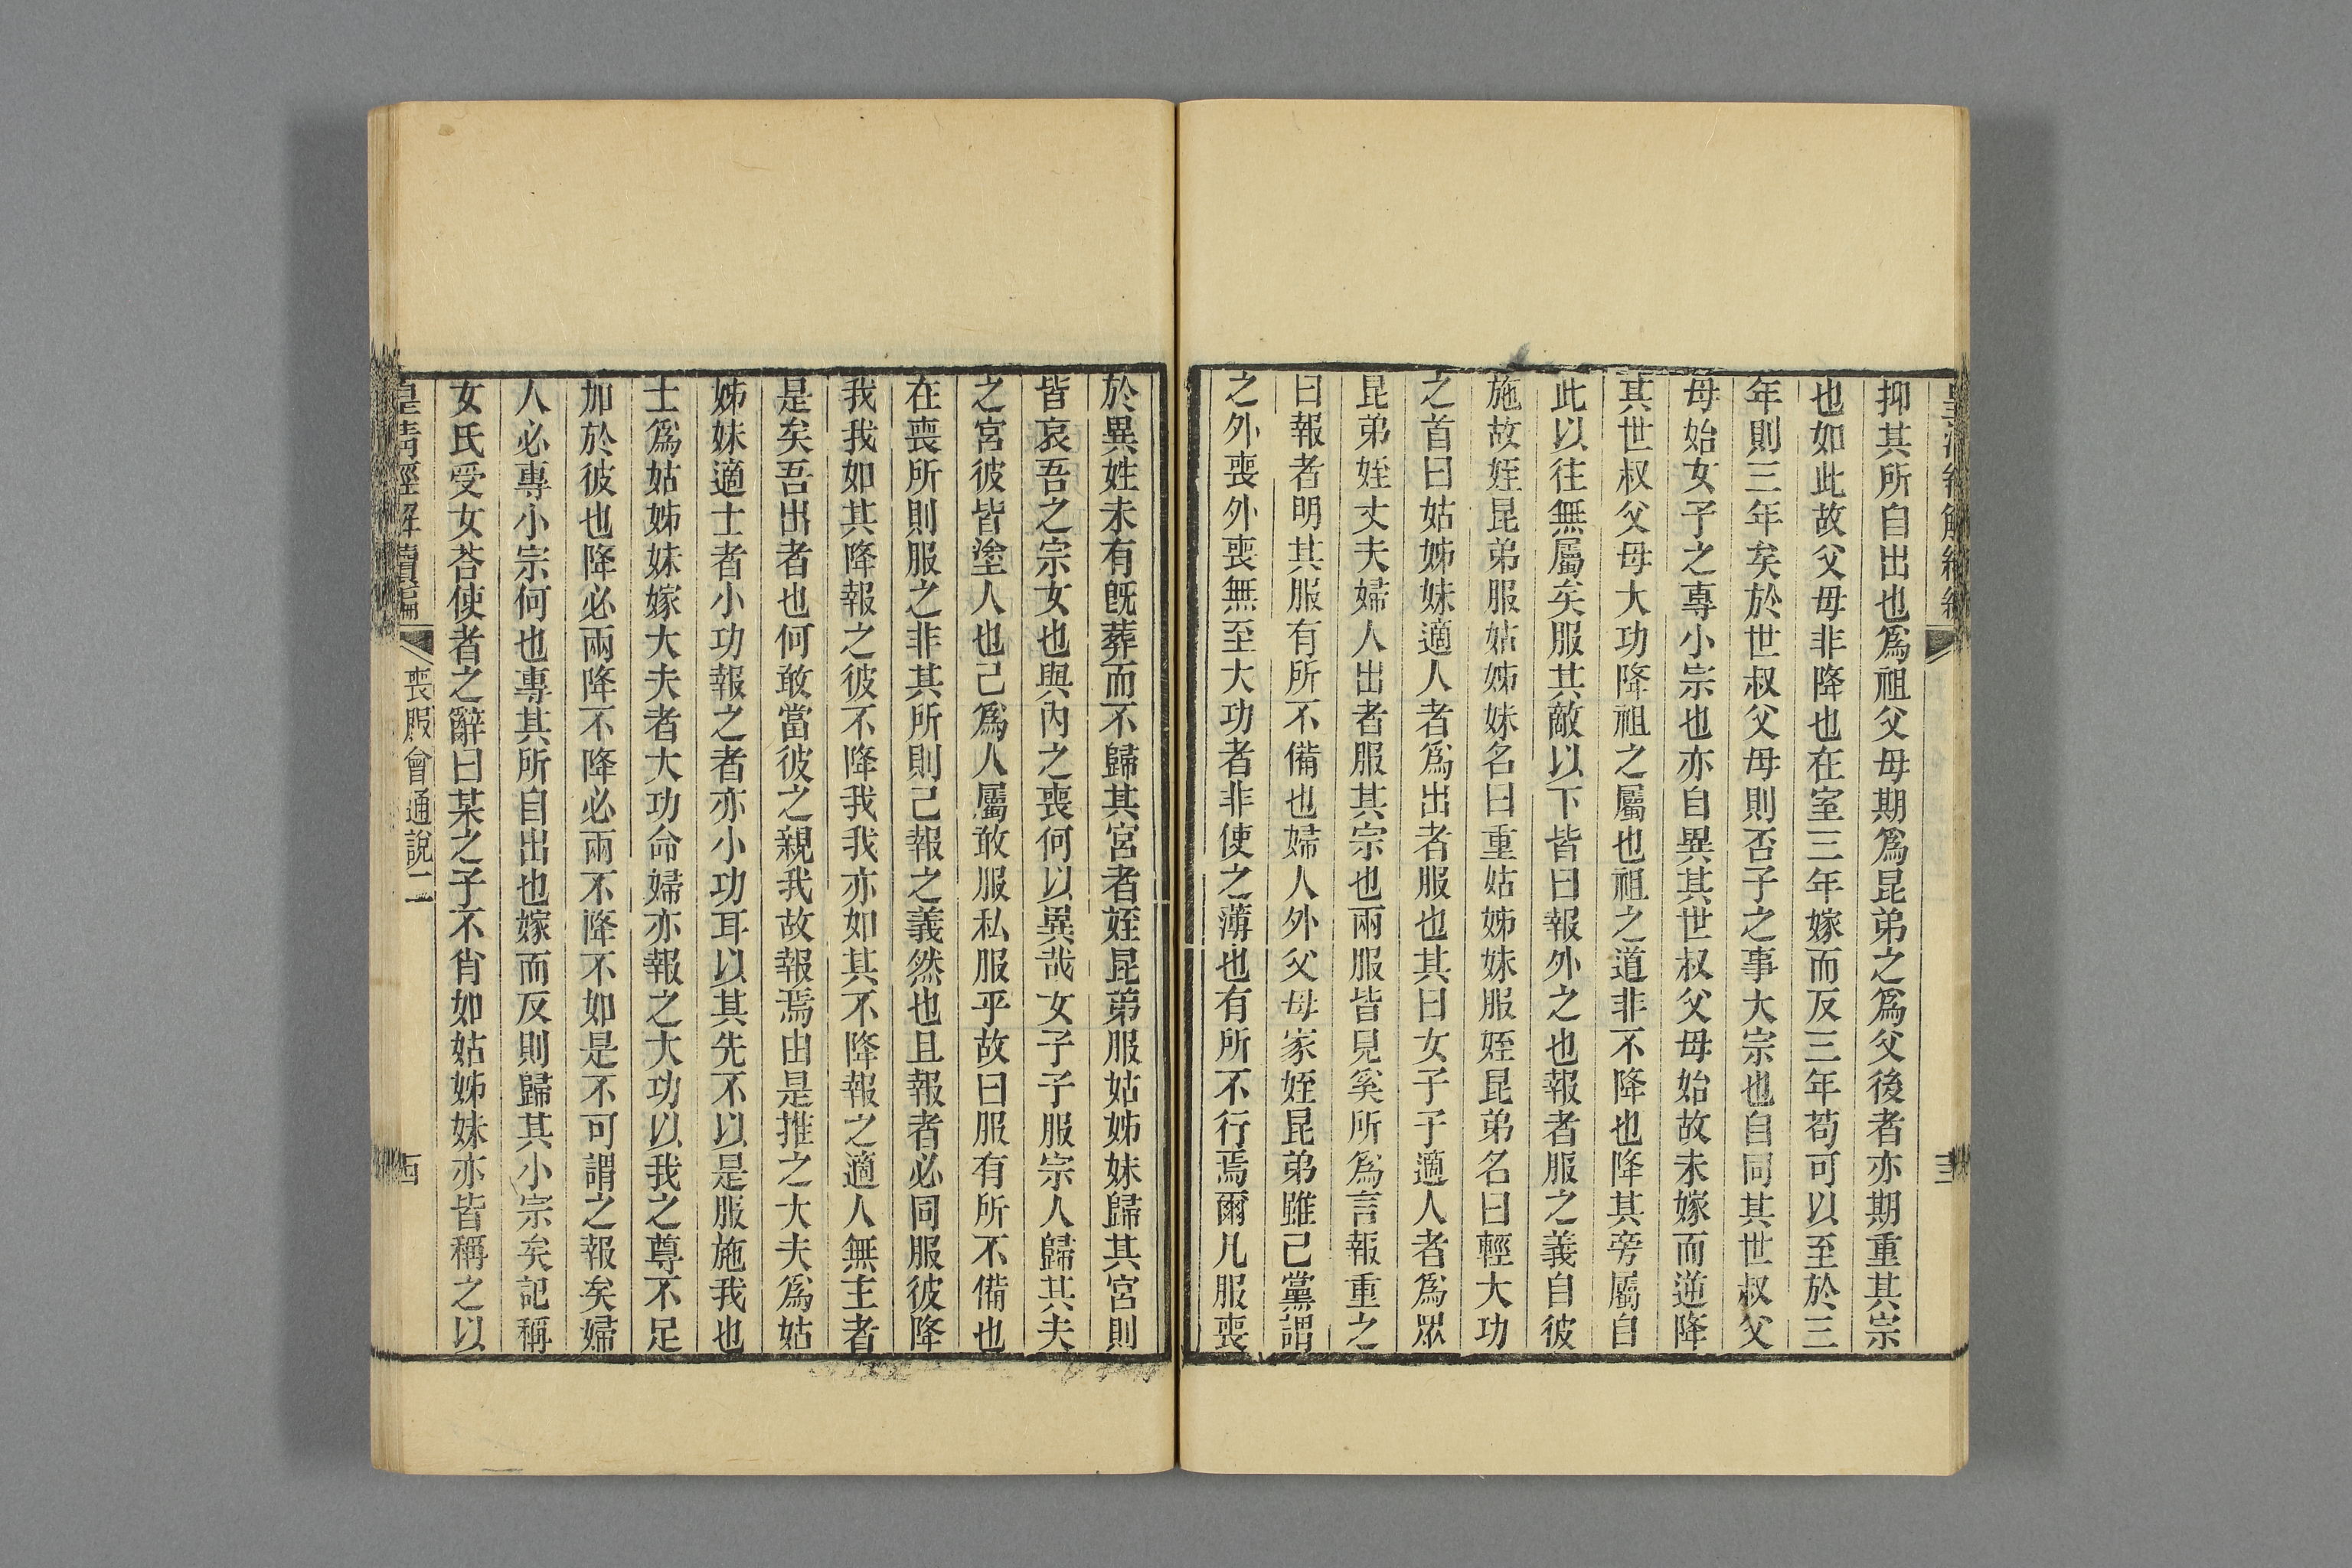 抑其所自出也爲祖父母期爲昆弟之爲父後者亦期重其宗
也如此故父母非降也在室三年嫁而反三年苟可以至於三
年則三年矣於世叔父母則否子之事大宗也自同其世叔父
母始女子之專小宗也亦自異其世叔父母始故未嫁而逆降
其世叔父母大功降祖之屬也祖之道非不降也降其旁屬自
此以往無屬矣服其敵以下皆曰報外之也報者服之義自彼
施故姪昆弟服姑姊妹名曰重姑姊妹服姪昆弟名曰輕大功
之首曰姑姊妹適人者爲出者服也其曰女子子適人者爲眾
昆弟姪丈夫婦人出者服其宗也兩服皆見奚所爲言報重之
曰報者明其服有所不備也婦人外父母家姪昆弟雖己黨謂
之外喪外喪無至大功者非使之薄也有所不行焉爾凡服喪
於異姓未有旣葬而不歸其宮者姪昆弟服姑姊妹歸其宮則
皆哀吾之宗女也與內之喪何以異哉女子子服宗人歸其夫
之宮彼皆塗人也己爲人屬敢服私服乎故曰服有所不備也
在喪所則服之非其所則己報之義然也且報者必同服彼降
我我如其降報之彼不降我我亦如其不降報之適人無主者
是矣吾出者也何敢當彼之親我故報焉由是推之大夫爲姑
姊妹適士者小功報之者亦小功耳以其先不以是服施我也
士爲姑姊妹嫁大夫者大功命婦亦報之大功以我之尊不足
加於彼也降必兩降不降必兩不降不如是不可謂之報矣婦
人必專小宗何也專其所自出也嫁而反則歸其小宗矣記稱
女氏受女荅使者之辭曰某之子不肖如姑姊妹亦皆稱之以
皇清經解續編
喪服會通說二